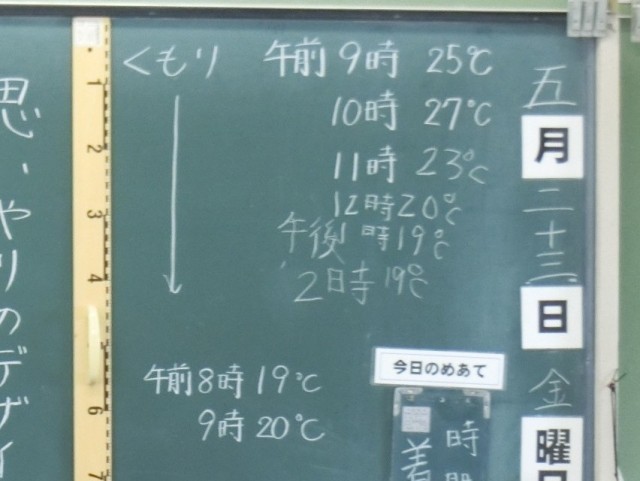 五月二十三日金曜日
くもり 午前9時 25℃
10時 27℃
11時 23℃
12時 20℃
午後1時 19℃
2時 19℃
午前8時 19℃
9時 20℃
今日のめあて
時間
着
思いやりのデザイ
1
2
3
4
6
7